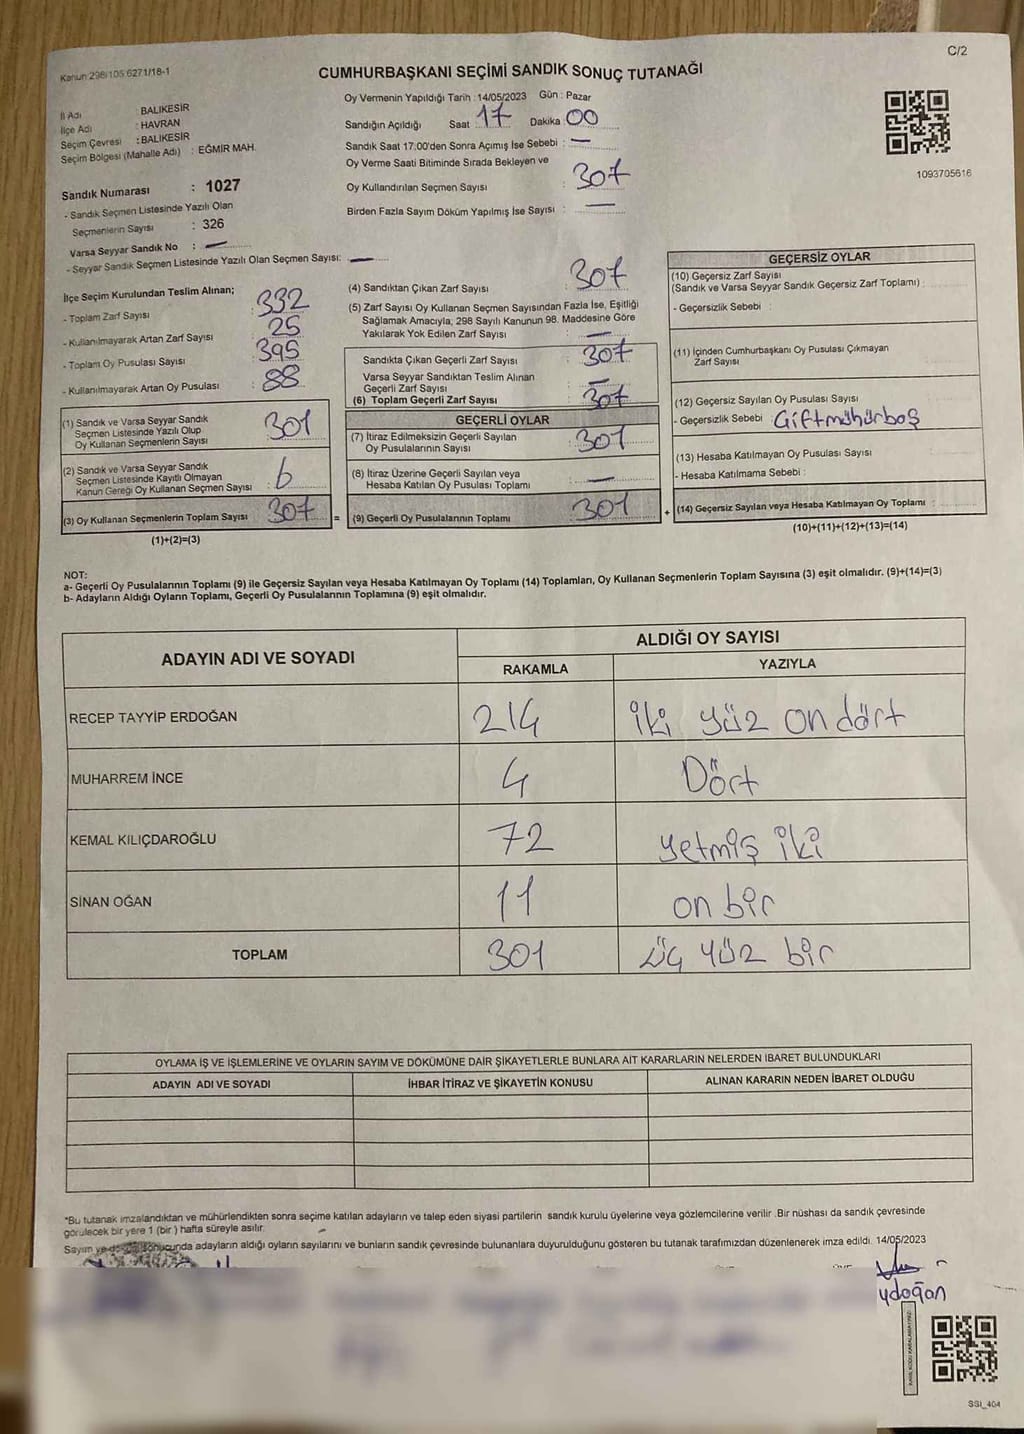 C/2
Kanun 298/105 6271/18-1
CUMHURBAŞKANI SEÇİMİ SANDIK SONUÇ TUTANAĞI
İl Adı : BALIKESİR
İlçe Adı : HAVRAN
Seçim Çevresi : BALIKESİR
Seçim Bölgesi (Mahalle Adı) : EĞMİR MAH.
Sandık Numarası : 1027
- Sandık Seçmen Listesinde Yazılı Olan
Seçmenlerin Sayısı : 326
Varsa Seyyar Sandık No : —
- Seyyar Sandık Seçmen Listesinde Yazılı Olan Seçmen Sayısı: —
Oy Vermenin Yapıldığı Tarih : 14/05/2023 Gün : Pazar
Sandığın Açıldığı Saat 17 Dakika 00
Sandık Saat 17:00'den Sonra Açımış İse Sebebi : —
Oy Verme Saati Bitiminde Sırada Bekleyen ve
Oy Kullandırılan Seçmen Sayısı : 307
Birden Fazla Sayım Döküm Yapılmış İse Sayısı : —
1093705616
İlçe Seçim Kurulundan Teslim Alınan;
- Toplam Zarf Sayısı : 332
- Kullanılmayarak Artan Zarf Sayısı : 25
- Toplam Oy Pusulası Sayısı : 395
- Kullanılmayarak Artan Oy Pusulası : 88
(1) Sandık ve Varsa Seyyar Sandık
Seçmen Listesinde Yazılı Olup
Oy Kullanan Seçmenlerin Sayısı : 301
(2) Sandık ve Varsa Seyyar Sandık
Seçmen Listesinde Kayıtlı Olmayan
Kanun Gereği Oy Kullanan Seçmen Sayısı : 6
(3) Oy Kullanan Seçmenlerin Toplam Sayısı : 307
(1)+(2)=(3)
(4) Sandıktan Çıkan Zarf Sayısı : 307
(5) Zarf Sayısı Oy Kullanan Seçmen Sayısından Fazla İse, Eşitliği
Sağlamak Amacıyla, 298 Sayılı Kanunun 98. Maddesine Göre
Yakılarak Yok Edilen Zarf Sayısı : —
Sandıkta Çıkan Geçerli Zarf Sayısı : 307
Varsa Seyyar Sandıktan Teslim Alınan
Geçerli Zarf Sayısı : —
(6) Toplam Geçerli Zarf Sayısı : 307
GEÇERLİ OYLAR
(7) İtiraz Edilmeksizin Geçerli Sayılan
Oy Pusulalarının Sayısı : 301
(8) İtiraz Üzerine Geçerli Sayılan veya
Hesaba Katılan Oy Pusulası Toplamı : —
= (9) Geçerli Oy Pusulalarının Toplamı : 301
GEÇERSİZ OYLAR
(10) Geçersiz Zarf Sayısı
(Sandık ve Varsa Seyyar Sandık Geçersiz Zarf Toplamı) :
- Geçersizlik Sebebi :
(11) İçinden Cumhurbaşkanı Oy Pusulası Çıkmayan
Zarf Sayısı :
(12) Geçersiz Sayılan Oy Pusulası Sayısı :
- Geçersizlik Sebebi Çiftmühürboş
(13) Hesaba Katılmayan Oy Pusulası Sayısı :
- Hesaba Katılmama Sebebi :
+ (14) Geçersiz Sayılan veya Hesaba Katılmayan Oy Toplamı :
(10)+(11)+(12)+(13)=(14)
NOT:
a- Geçerli Oy Pusulalarının Toplamı (9) ile Geçersiz Sayılan veya Hesaba Katılmayan Oy Toplamı (14) Toplamları, Oy Kullanan Seçmenlerin Toplam Sayısına (3) eşit olmalıdır. (9)+(14)=(3)
b- Adayların Aldığı Oyların Toplamı, Geçerli Oy Pusulalarının Toplamına (9) eşit olmalıdır.
ADAYIN ADI VE SOYADI ALDIĞI OY SAYISI
RAKAMLA YAZIYLA
RECEP TAYYİP ERDOĞAN 214 iki yüz on dört
MUHARREM İNCE 4 Dört
KEMAL KILIÇDAROĞLU 72 yetmiş iki
SİNAN OĞAN 11 on bir
TOPLAM 301 üç yüz bir
OYLAMA İŞ VE İŞLEMLERİNE VE OYLARIN SAYIM VE DÖKÜMÜNE DAİR ŞİKAYETLERLE BUNLARA AİT KARARLARIN NELERDEN İBARET BULUNDUKLARI
ADAYIN ADI VE SOYADI İHBAR İTİRAZ VE ŞİKAYETİN KONUSU ALINAN KARARIN NEDEN İBARET OLDUĞU
*Bu tutanak imzalandıktan ve mühürlendikten sonra seçime katılan adayların ve talep eden siyasi partilerin sandık kurulu üyelerine veya gözlemcilerine verilir .Bir nüshası da sandık çevresinde
görülecek bir yere 1 (bir ) hafta süreyle asılır.
Sayım ve sonucunda adayların aldığı oyların sayılarını ve bunların sandık çevresinde bulunanlara duyurulduğunu gösteren bu tutanak tarafımızdan düzenlenerek imza edildi. 14/05/2023
ydoğan
SSI_404